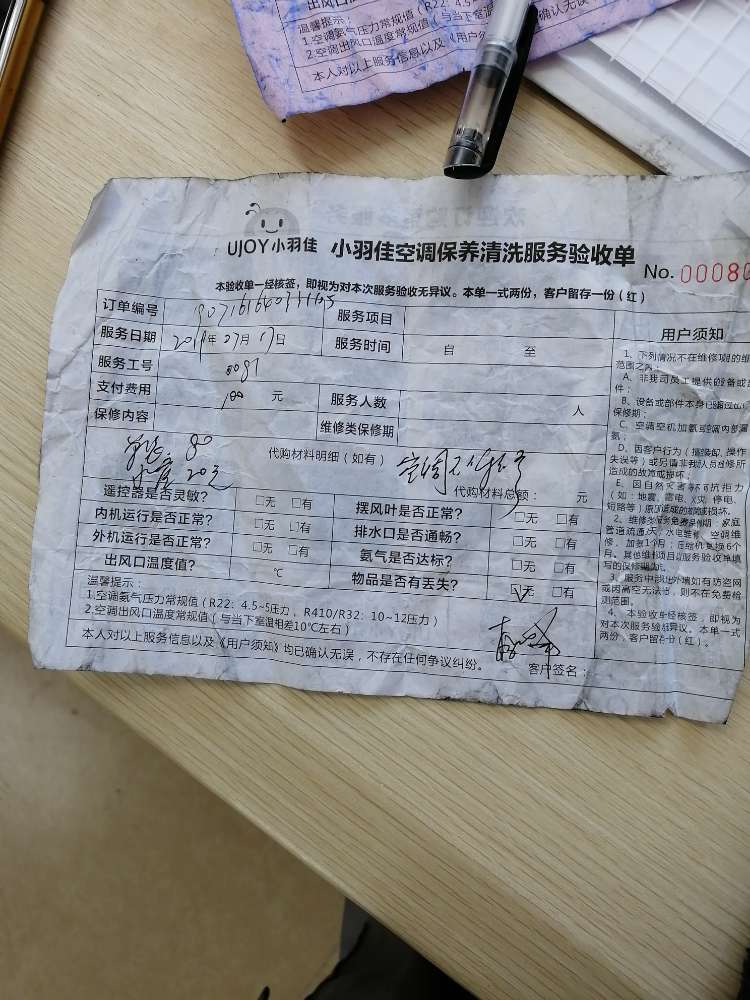 温馨提示：
1.空调氨气压力常规值（R22：4.5~
2.空调出风口温度常规值（与当下室温
确认无误
本人对以上服务信息以及《用户须
UJOY小羽佳 小羽佳空调保养清洗服务验收单
No. 00080
本验收单一经核签，即视为对本次服务验收无异议。本单一式两份，客户留存一份（红）
订单编号 服务项目
服务日期 2019年07月17日 服务时间 自 至
服务工号 0087
支付费用 100 元 服务人数 人
保修内容 维修类保修期
代购材料明细（如有）
80
20元
代购材料总额： 元
遥控器是否灵敏？ □无 □有 摆风叶是否正常？ □无 □有
内机运行是否正常？ □无 □有 排水口是否通畅？ □无 □有
外机运行是否正常？ □无 □有 氨气是否达标？ □无 □有
出风口温度值？ ℃ 物品是否有丢失？ ☑无 □有
温馨提示：
1.空调氨气压力常规值（R22：4.5~5压力，R410/R32：10~12压力）
2.空调出风口温度常规值（与当下室温相差10℃左右）
本人对以上服务信息以及《用户须知》均已确认无误，不存在任何争议纠纷。
客户签名：
用户须知
1、下列情况不在维修项目的维
范围之内：
A、非我司员工提供的设备或
件；
B、设备或部件本身已超过
保修期；
C、空调空机加氨或空调内部漏
氨；
D、因客户行为（擅接卸、操作
失误等）或另请非我队员维修所
造成的故障或损坏。
E、因自然灾害等不可抗拒力
（如：地震、雷电、火灾、停电、
短路等）原因造成的故障或损坏。
2、维修类服务免费保修期：家庭
管道疏通7天，水电维修、空调维
修、加氨1个月；压缩机更换6个
月。其他维修项目以服务验收单填
写的保修期为准。
3、服务中拆出外墙如有防盗网
或因高空无法
测范围。
4、本验收单经核签，即视为
对本次服务验收无异议。本单一式
两份，客户留存一份（红）。